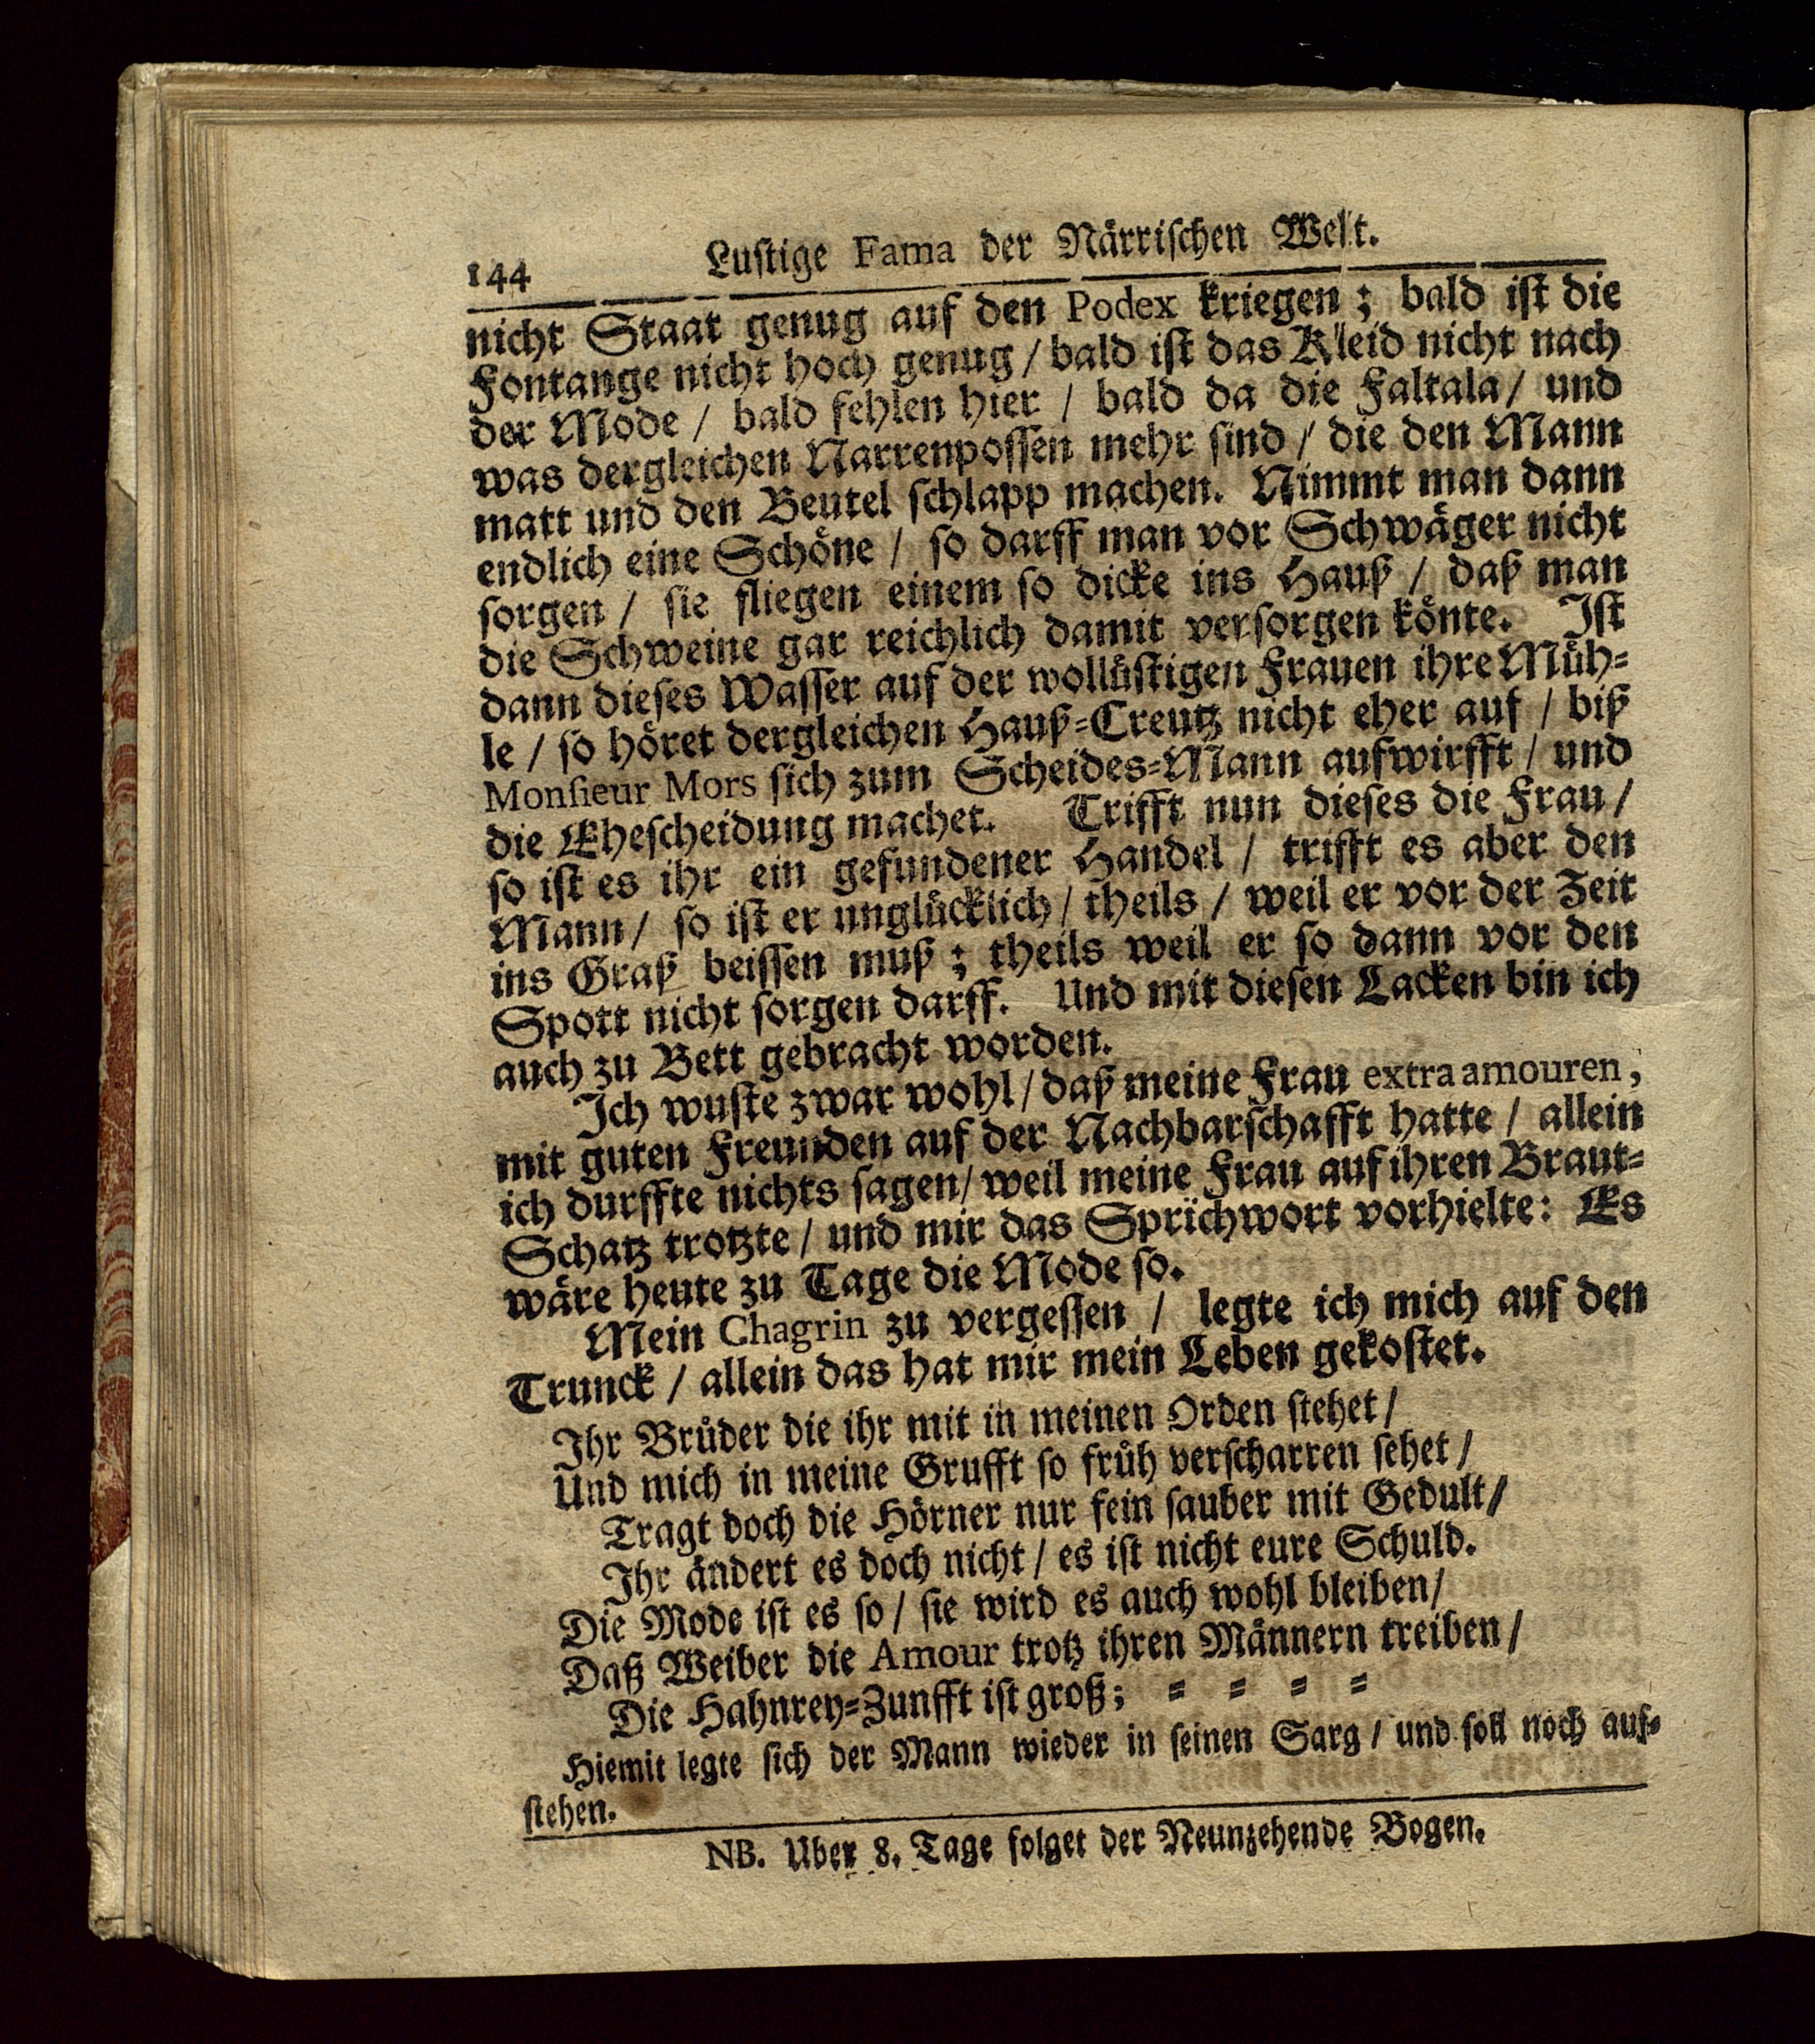 144 Lustige Fama der Närrischen Welt.
nicht Staat genug auf den Podex kriegen; bald ist die
Fontange nicht hoch genug / bald ist das Kleid nicht nach
der Mode / bald fehlen hier / bald da die Faltala / und
was dergleichen Narrenpossen mehr sind / die den Mann
matt und den Beutel schlapp machen. Nimmt man dann
endlich eine Schöne / so darff man vor Schwäger nicht
sorgen / sie fliegen einem so dicke ins Hauß / daß man
die Schweine gar reichlich damit versorgen könte. Ist
dann dieses Wasser auf der wollüstigen Frauen ihre Müh=
le / so höret dergleichen Hauß=Creutz nicht eher auf / biß
Monsieur Mors sich zum Scheides=Mann aufwirfft / und
die Ehescheidung machet. Trifft nun dieses die Frau /
so ist es ihr ein gefundener Handel / trifft es aber den
Mann / so ist er unglücklich / theils / weil er vor der Zeit
ins Graß beissen muß; theils weil er so dann vor den
Spott nicht sorgen darff. Und mit diesen Lacken bin ich
auch zu Bett gebracht worden.
Ich wuste zwar wohl / daß meine Frau extra amouren,
mit guten Freunden auf der Nachbarschafft hatte / allein
ich durffte nichts sagen / weil meine Frau auf ihren Braut=
Schatz trotzte / und mir das Sprichwort vorhielte: Es
wäre heute zu Tage die Mode so.
Mein Chagrin zu vergessen / legte ich mich auf den
Trunck / allein das hat mir mein Leben gekostet.
Ihr Brüder die ihr mit in meinen Orden stehet /
Und mich in meine Grufft so früh verscharren sehet /
Tragt doch die Hörner nur fein sauber mit Gedult /
Ihr ändert es doch nicht / es ist nicht eure Schuld.
Die Mode ist es so / sie wird es auch wohl bleiben /
Daß Weiber die Amour trotz ihren Männern treiben /
Die Hahnrey=Zunfft ist groß; = = = =
Hiemit legte sich der Mann wieder in seinen Sarg / und soll noch auf=
stehen.
NB. Uber 8. Tage folget der Neunzehende Bogen.